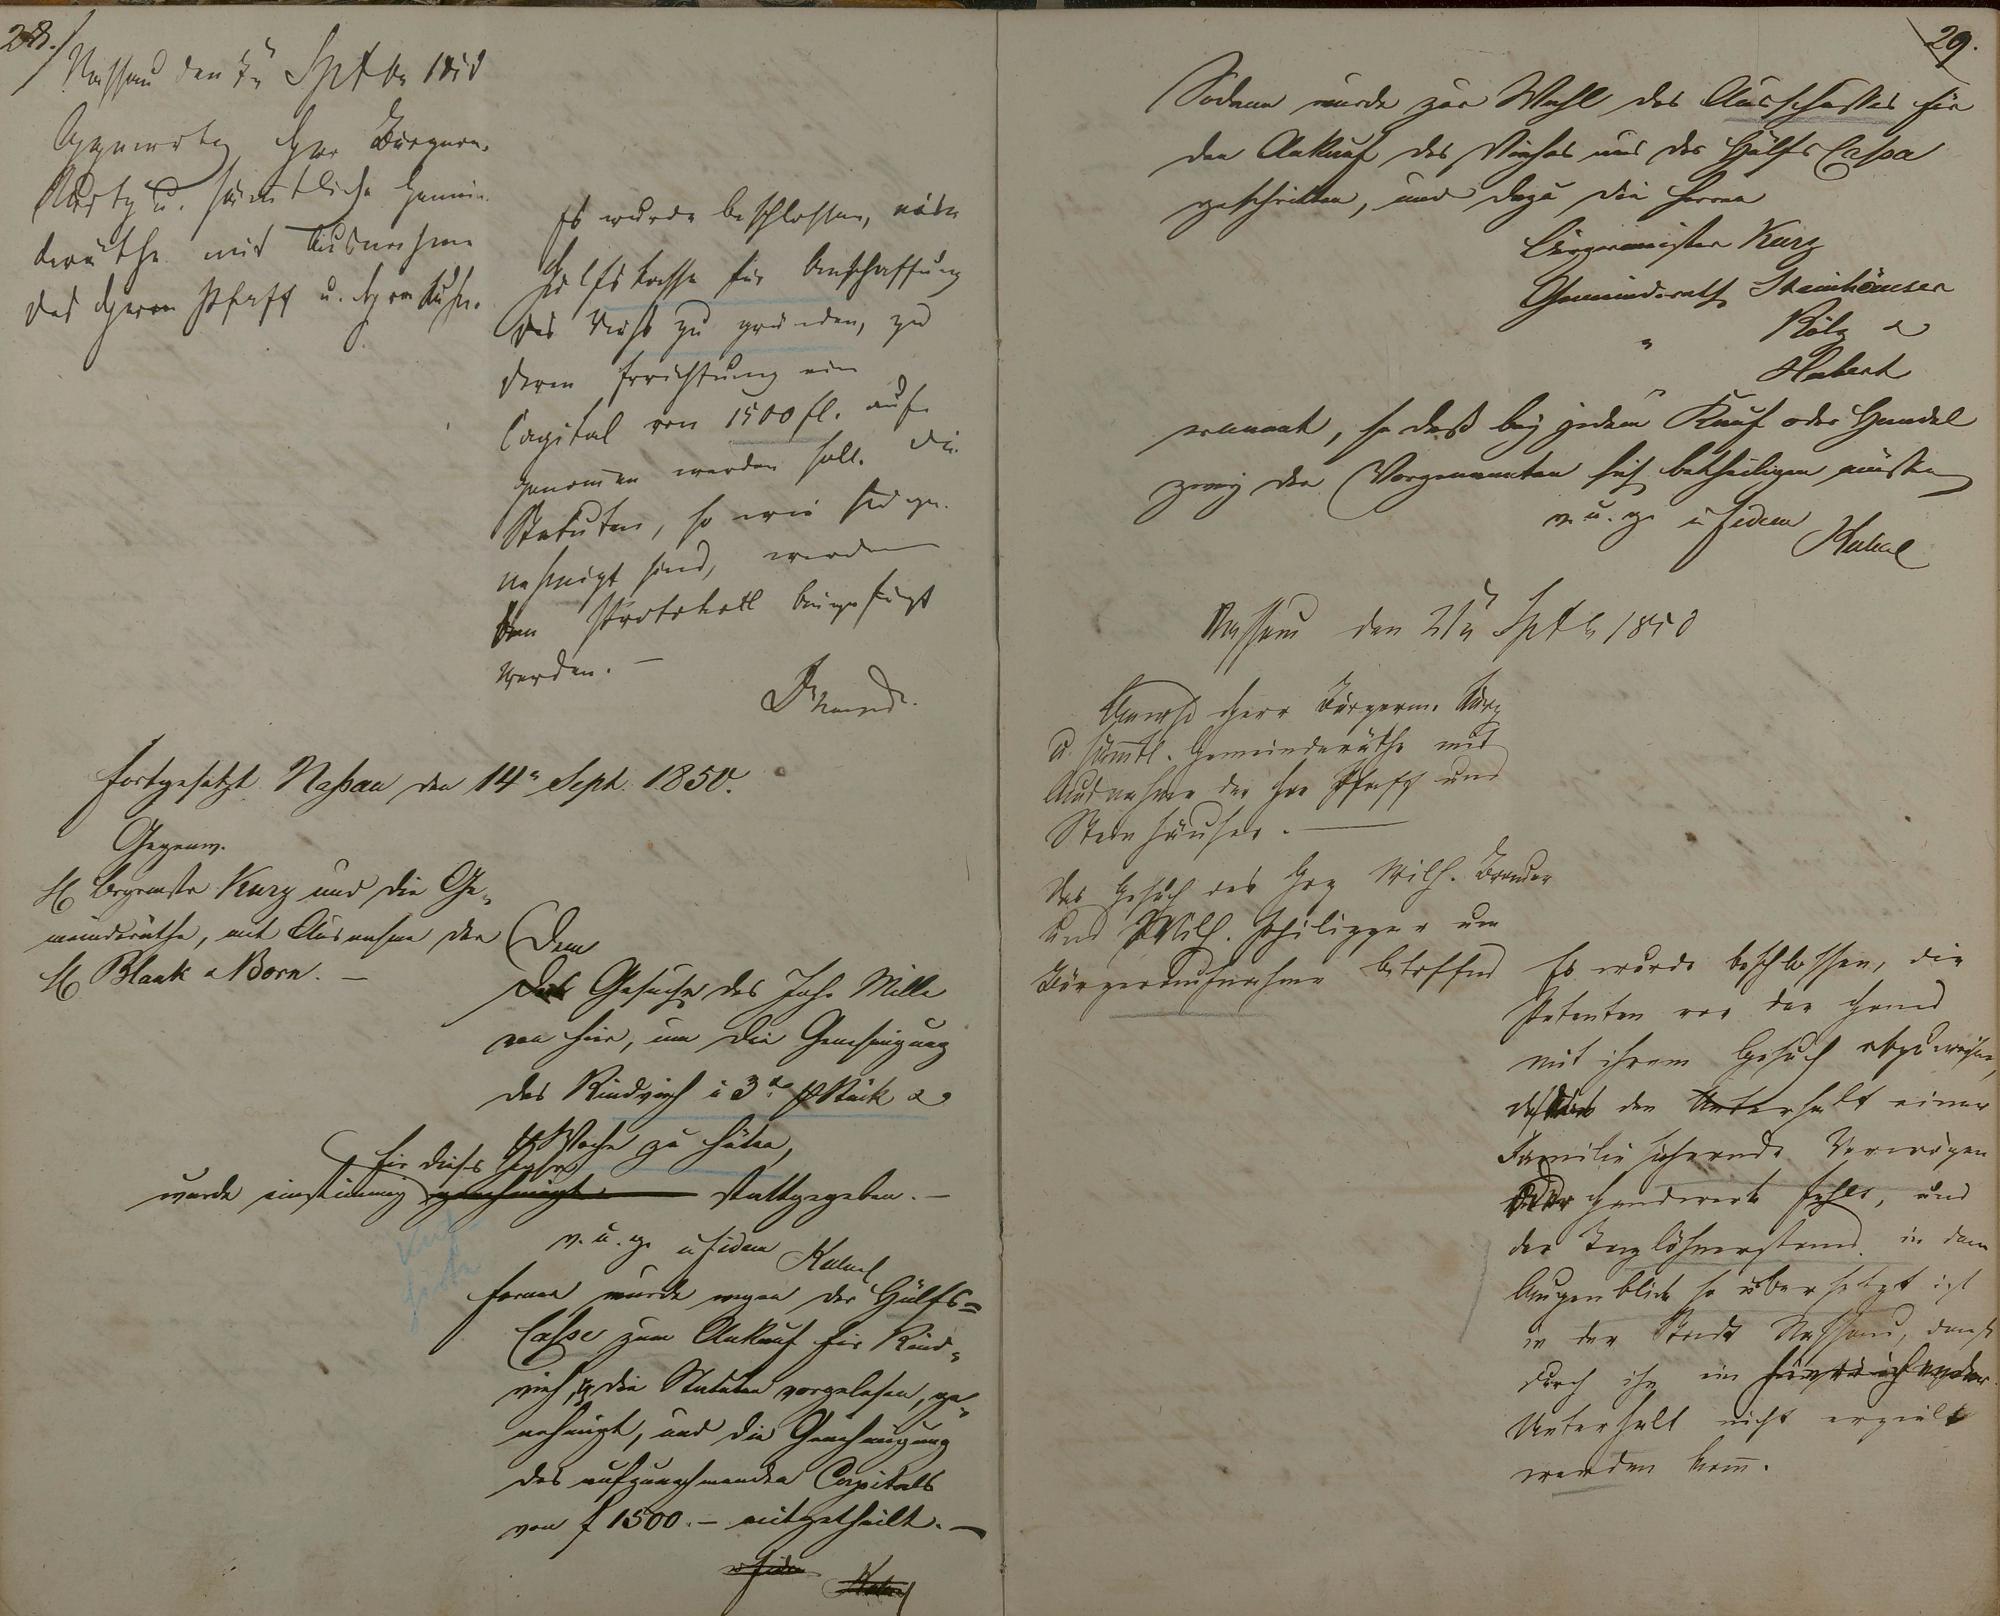 28.
Nassau den 7n Septbr 1850
Gegenwärtig Herr Bürgerm.
Kurtz u. sämtliche Gemein-
deräthe mit Ausnahme
des Herrn Pfaff u. Herrn
Es wurde beschlossen, eine
Hülfskasse für Anschaffung
des Viehs zu gründen, zu
deren Errichtung ein
Capital von 1500 fl. auf-
genomen werden soll. Die
Statuten, so wie sie ge-
nehmigt sind, werden
dem Protokoll beigefügt
werden. —
fortgesetzt Naßau den 14n Sept. 1850.
Gegenw.
H Bürgermstr Kurz und die Ge-
meinderäthe, mit Ausnahme der
H Blank & Born. —
Dem
Gesuche des Joh. Mille
von hier, um die Genehmigung
das Rindvieh à 3 xr p Stück &
p Woche zu hüten,
für dieses Jahr
wurde einstimmig genehmigt stattgegeben. —
v. u. g. in fidem
ferner wurde wegen der Hülfs-
Casse zum Ankauf für Rind-
vieh, die Statuten vorgelesen, ge-
nehmigt, und die Genehmigung
des aufzunehmenden Capitals
von f 1500. — mitgetheilt. —
in fidem
29.
Sodann wurde zur Wahl des Ausschusses für
den Ankauf des Viehes aus der Hülfs Cassa
geschritten, und dazu die Herren
Bürgermeister Kurz
Gemeinderath Steinhäuser
" Bölz &
" Habert
ernannt, so daß bey jedem Kauf oder Handel
zwey der Vorgenannten sich betheiligen müssen
v. u. g. in fidem
Nassau den 21n Septb 1850
Anwesd Herr Bürgerm. Kurz
u. sämtl. Gemeinderäthe mit
Ausnahme der Hrr Pfaff und
Steinhäuser. —
Das Gesuch des Wilh. Bruder
und Wilh. Philippar um
Bürgeraufnahme betreffend
Es wurde beschlossen, die
Petenten vor der Hand
mit ihrem Gesuch abzuweisen,
den Unterhalt einer
Familie sichernde Vermögen
Handwerk fehlt, und
der Taglöhnerstand in dem
Augenblick so übersetzt ist
in der Stadt Nassau, daß
durch ihn ein hinreichender
Unterhalt nicht erzielt
werden kann.